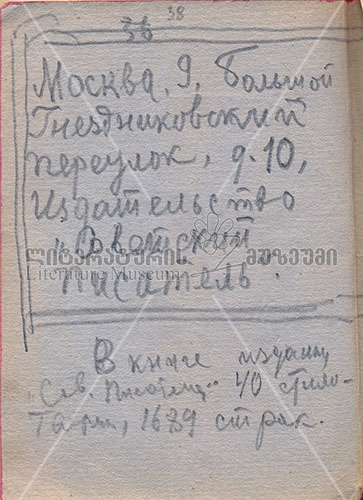 38
38
Москва, 9, Большой
Гнездниковский
переулок, д. 10,
Издательство
„Советский
ლიტერატურის მუზეუმი
Literature Museum
писатель".
В книге издания
„Сов. Писатель" 40 стихо-
1689 строк.